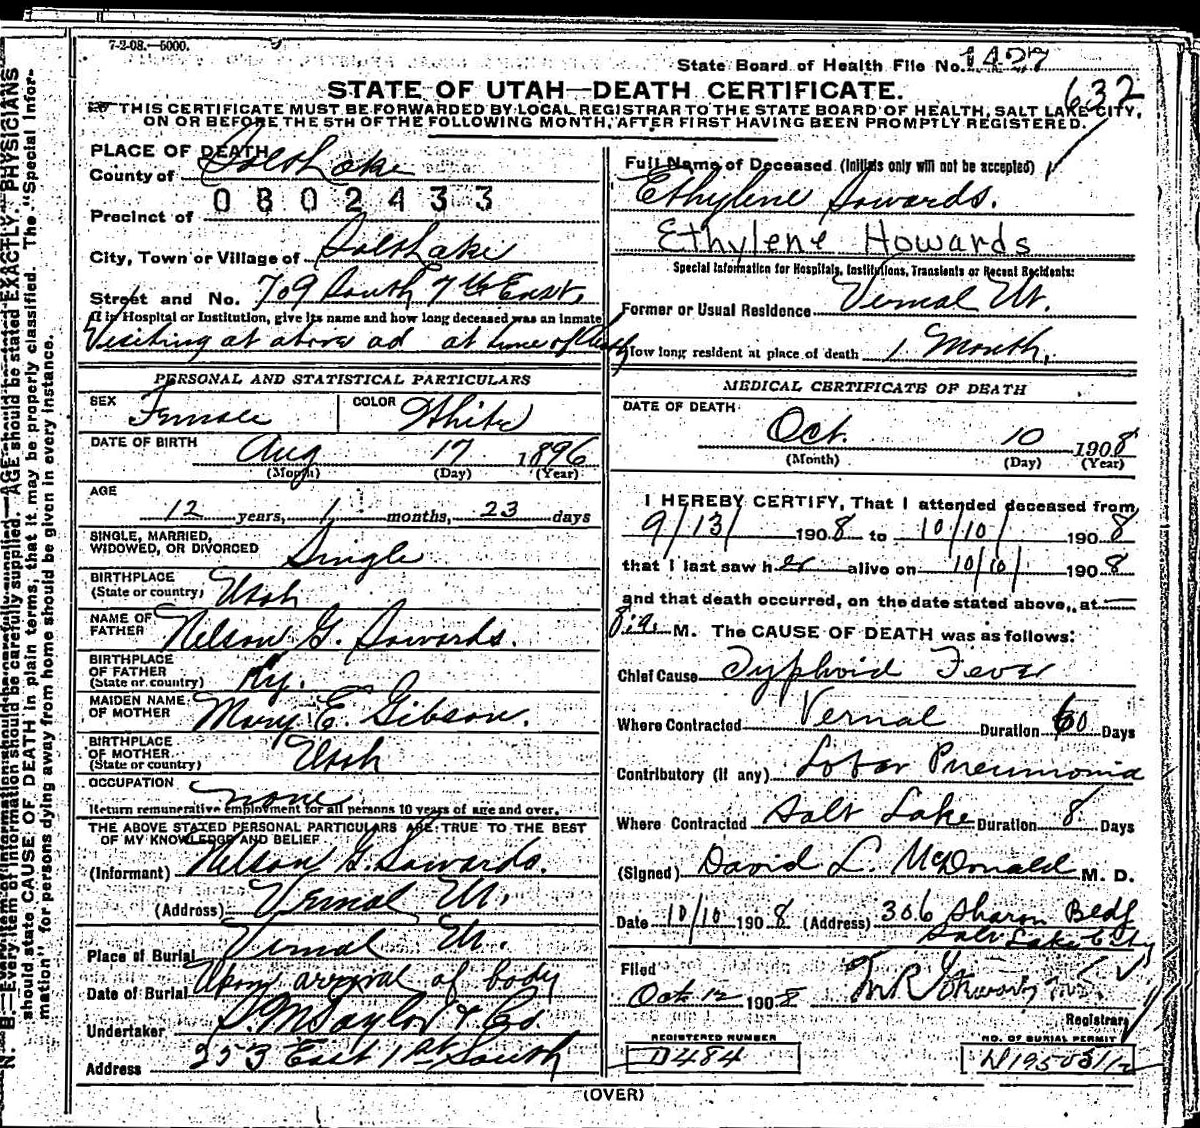 7-2-08.—5000.
State Board of Health File No. 1427
632
STATE OF UTAH—DEATH CERTIFICATE.
THIS CERTIFICATE MUST BE FORWARDED BY LOCAL REGISTRAR TO THE STATE BOARD OF HEALTH, SALT LAKE CITY,
ON OR BEFORE THE 5TH OF THE FOLLOWING MONTH, AFTER FIRST HAVING BEEN PROMPTLY REGISTERED.
PLACE OF DEATH
County of Salt Lake
0802433
Precinct of
City, Town or Village of Salt Lake
Street and No. 709 South 7th East.
If in Hospital or Institution, give its name and how long deceased was an inmate
Visiting at above ad at time of death
PERSONAL AND STATISTICAL PARTICULARS
SEX Female COLOR White
DATE OF BIRTH Aug 17 1896
(Month) (Day) (Year)
AGE
12 years, 1 months, 23 days
SINGLE, MARRIED,
WIDOWED, OR DIVORCED Single
BIRTHPLACE
(State or country) Utah
NAME OF
FATHER Nelson G. Sowards.
BIRTHPLACE
OF FATHER
(State or country) Ky.
MAIDEN NAME
OF MOTHER Mary E. Gibson.
BIRTHPLACE
OF MOTHER
(State or country) Utah
OCCUPATION none
Return remunerative employment for all persons 10 years of age and over.
THE ABOVE STATED PERSONAL PARTICULARS ARE TRUE TO THE BEST
OF MY KNOWLEDGE AND BELIEF
(Informant) Nelson G. Sowards.
(Address) Vernal Ut.
Place of Burial Vernal Ut.
Date of Burial Upon arrival of body
Undertaker S. M. Taylor & Co
Address 253 East 1st South
Full Name of Deceased (Initials only will not be accepted)
Ethylene Sowards.
Ethylene Howards
Special Information for Hospitals, Institutions, Transients or Recent Residents:
Former or Usual Residence Vernal Ut.
How long resident at place of death 1 Month,
MEDICAL CERTIFICATE OF DEATH
DATE OF DEATH
Oct. 10 1908
(Month) (Day) (Year)
I HEREBY CERTIFY, That I attended deceased from
9/13/ 1908 to 10/10/ 1908
that I last saw her alive on 10/10/ 1908
and that death occurred, on the date stated above, at
8:a. M. The CAUSE OF DEATH was as follows:
Chief Cause Typhoid Fever
Where Contracted Vernal Duration 60 Days
Contributory (if any) Lobar Pneumonia
Where Contracted Salt Lake Duration 8 Days
(Signed) David L. McDonald M. D.
Date 10/10 1908 (Address) 306 Sharon Bldg
Salt Lake City
Filed
Oct 12 1908
Registrar
REGISTERED NUMBER
D484
NO. OF BURIAL PERMIT
(OVER)
N. B.—Every item of information should be carefully supplied. AGE should be stated EXACTLY. PHYSICIANS
should state CAUSE OF DEATH in plain terms, that it may be properly classified. The "Special Infor-
mation" for persons dying away from home should be given in every instance.